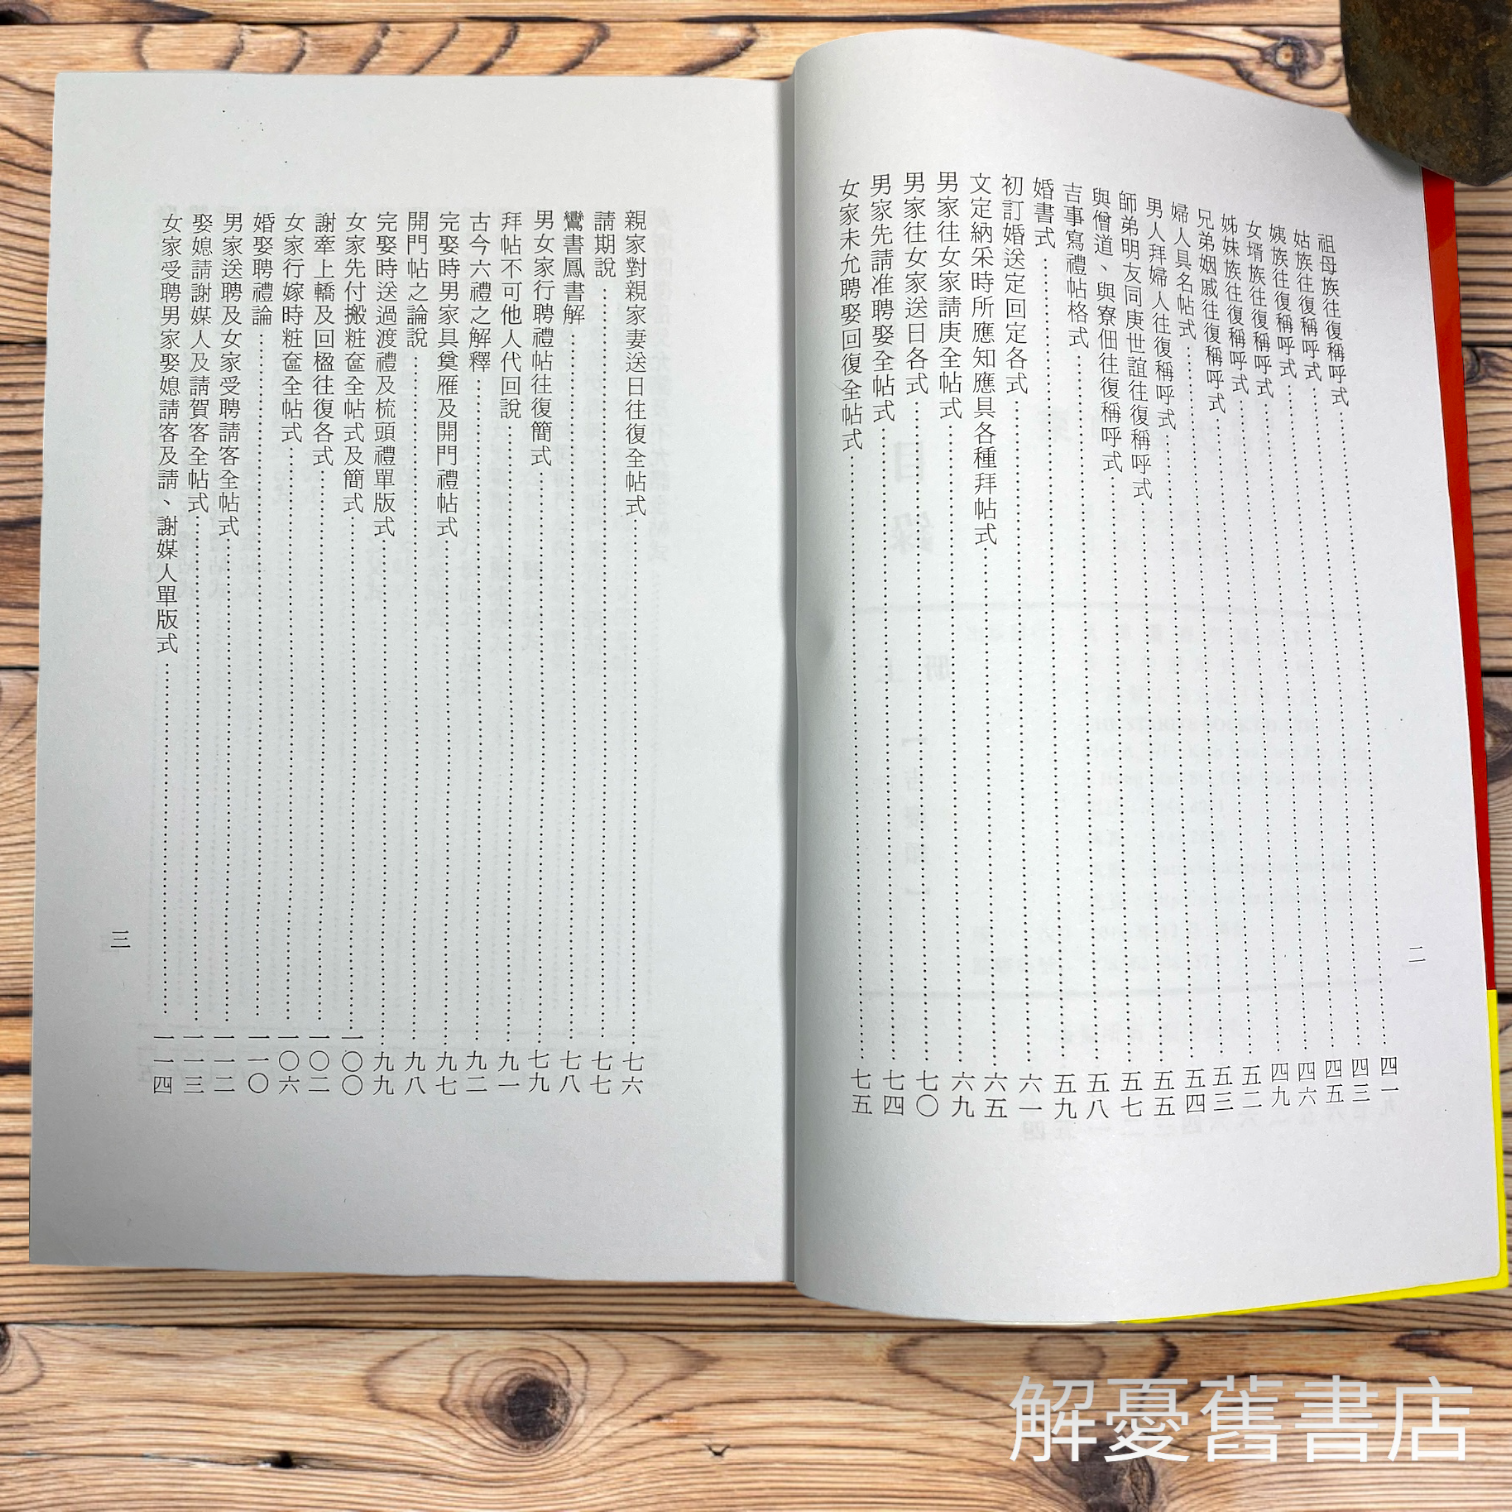 祖母族往復稱呼式……四一
姑族往復稱呼式……四三
姨族往復稱呼式……四五
女壻族往復稱呼式……四六
姊妹族往復稱呼式……四九
兄弟姻戚往復稱呼式……五二
婦人具名帖式……五三
男人拜婦人往復稱呼式……五四
師弟明友同庚世誼往復稱呼式……五五
與僧道、與寮佃往復稱呼式……五七
吉事寫禮帖格式……五八
婚書式……五九
初訂婚送定回定各式……六一
文定納采時所應知應具各種拜帖式……六五
男家往女家請庚全帖式……六九
男家往女家送日各式……七〇
男家先請准聘娶全帖式……七四
女家未允聘娶回復全帖式……七五
二
親家對親家妻送日往復全帖式……七六
請期說……七七
鸞書鳳書解……七八
男女家行聘禮帖往復簡式……七九
拜帖不可他人代回說……九一
古今六禮之解釋……九二
完娶時男家具奠雁及開門禮帖式……九七
開門帖之論說……九八
完娶時送過渡禮及梳頭禮單版式……九九
女家先付搬粧奩全帖式及簡式……一〇〇
謝牽上轎及回楹往復各式……一〇二
女家行嫁時粧奩全帖式……一〇六
婚娶聘禮論……一一〇
男家送聘及女家受聘請客全帖式……一一二
娶媳請謝媒人及請賀客全帖式……一一三
女家受聘男家娶媳請客及請、謝媒人單版式……一一四
三
解憂舊書店